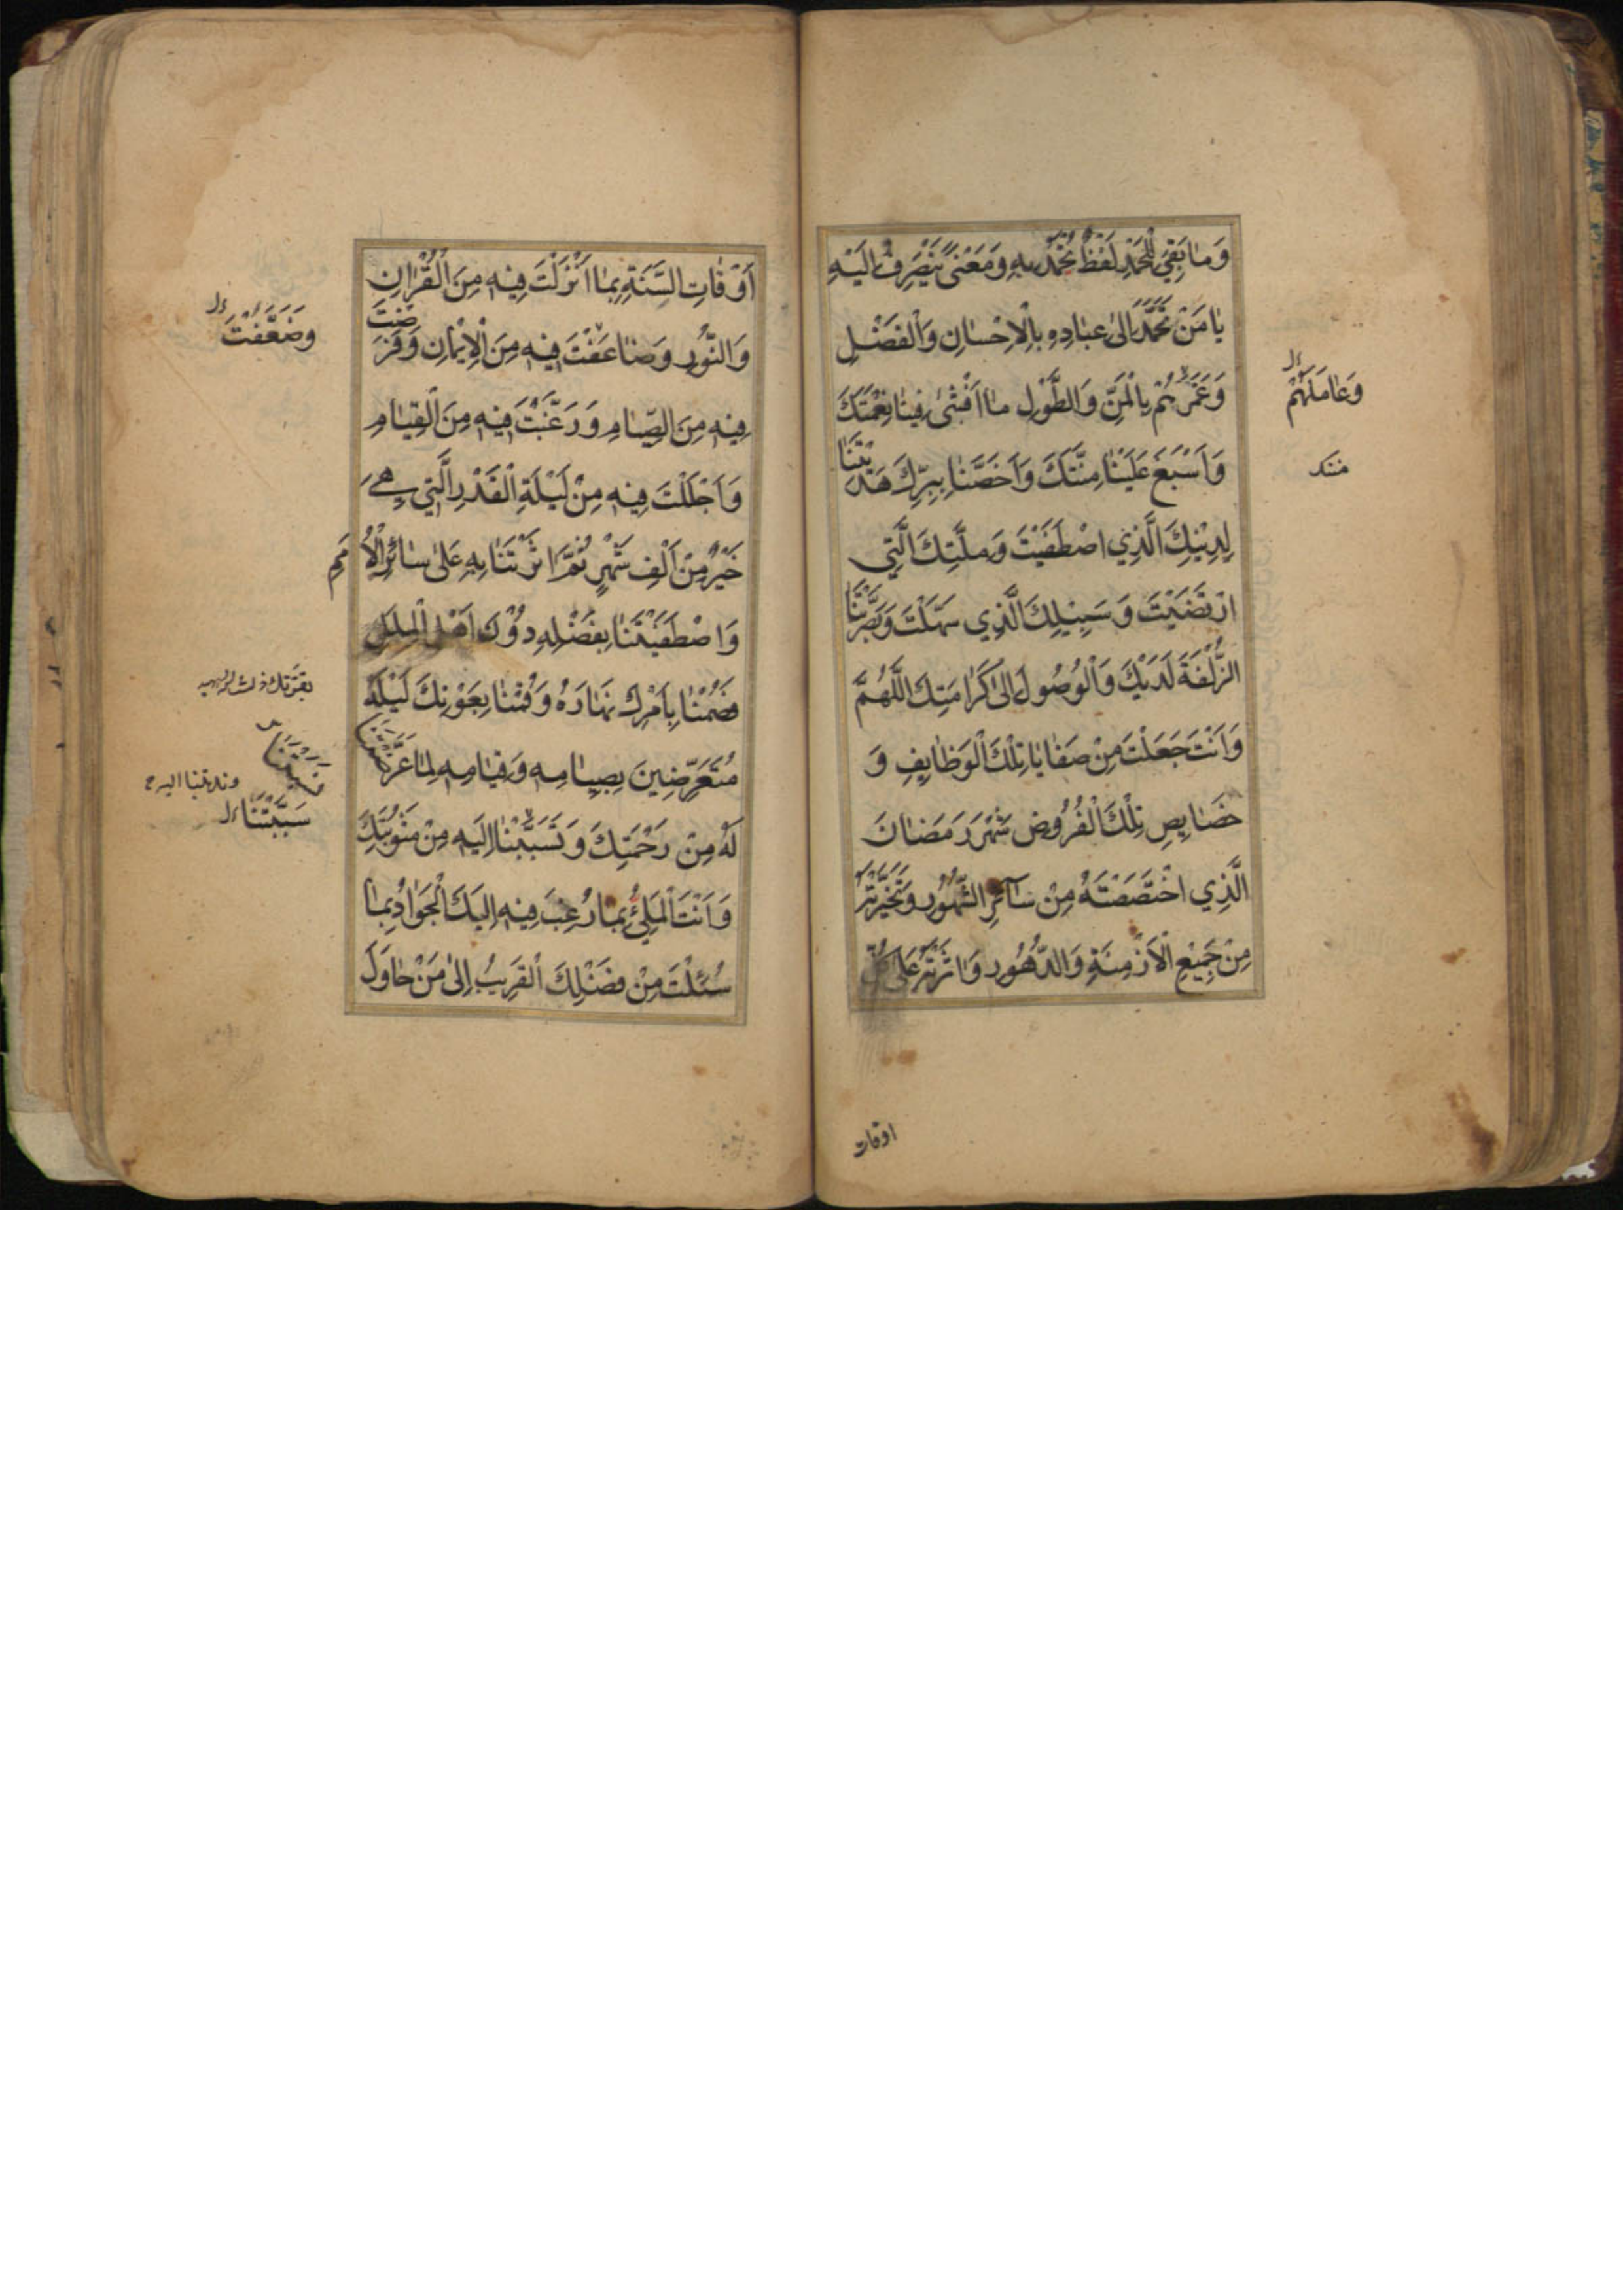 وَمٰا بَقِيَ لِلْحَمْدِ لَفْظٌ تُحْمَدُ بِهِ وَمَعْنىً يَنْصَرِفُ اِلَيْهِ
يٰا مَنْ تَحَمَّدَ اِلىٰ عِبٰادِهِ بِالْاِحْسٰانِ وَالْفَضْلِ
وَغَمَرَهُمْ بِالْمَنِّ وَالطَّوْلِ مٰا اَفْشٰى فِينٰا نِعْمَتَكَ
وَاَسْبَغَ عَلَيْنٰا مِنَّتَكَ وَاَخَصَّنٰا بِبِرِّكَ هَدَيْتَنٰا
لِدِيْنِكَ الَّذِي اصْطَفَيْتَ وَمِلَّتِكَ الَّتِي
ارْتَضَيْتَ وَسَبِيْلِكَ الَّذِي سَهَّلْتَ وَبَصَّرْتَنَا
الزُّلْفَةَ لَدَيْكَ وَالْوُصُولَ اِلىٰ كَرٰامَتِكَ اللّٰهُمَّ
وَاَنْتَ جَعَلْتَ مِنْ صَفٰايٰا تِلْكَ الْوَظٰايِفِ وَ
خَصٰايِصِ تِلْكَ الْفُرُوضِ شَهْرَ رَمَضٰانَ
الَّذِي اخْتَصَصْتَهُ مِنْ سٰآئِرِ الشُّهُورِ وَتَخَيَّرْتَهُ
مِنْ جَمِيْعِ الْاَزْمِنَةِ وَالدُّهُورِ وَاٰثَرْتَهُ عَلىٰ كُلِّ
اوقات
وَعٰامَلَهُمْ
مننک
اَوْقٰاتِ السَّنَةِ بِمٰا اَنْزَلْتَ فِيْهِ مِنَ الْقُرْاٰنِ
وَالنُّورِ وَضٰاعَفْتَ فِيْهِ مِنَ الْاِيْمٰانِ وَفَرَضْتَ
فِيْهِ مِنَ الصِّيٰامِ وَرَغَّبْتَ فِيْهِ مِنَ الْقِيٰامِ
وَاَجْلَلْتَ فِيْهِ مِنْ لَيْلَةِ الْقَدْرِ الَّتِي هِيَ
خَيْرٌ مِنْ اَلْفِ شَهْرٍ ثُمَّ اٰثَرْتَنٰا بِهِ عَلىٰ سٰائِرِ الْاُمَمِ
وَاصْطَفَيْتَنٰا بِفَضْلِهِ دُوْنَ اَهْلِ الْمِلَلِ
فَصُمْنٰا بِاَمْرِكَ نَهٰارَهُ وَقُمْنٰا بِعَوْنِكَ لَيْلَهُ
مُتَعَرِّضِينَ بِصِيٰامِهِ وَقِيٰامِهِ لِمٰا عَرَّضْتَنٰا
لَهُ مِنْ رَحْمَتِكَ وَتَسَبَّبْنٰا اِلَيْهِ مِنْ مَثُوبَتِكَ
وَاَنْتَ الْمَلِيْءُ بِمٰا رُغِبَ فِيْهِ اِلَيْكَ الْجَوٰادُ بِمٰا
سُئِلْتَ مِنْ فَضْلِكَ الْقَرِيبُ اِلىٰ مَنْ حٰاوَلَ
وَضَعَّفْتَ
سَبَّبْتَنٰا